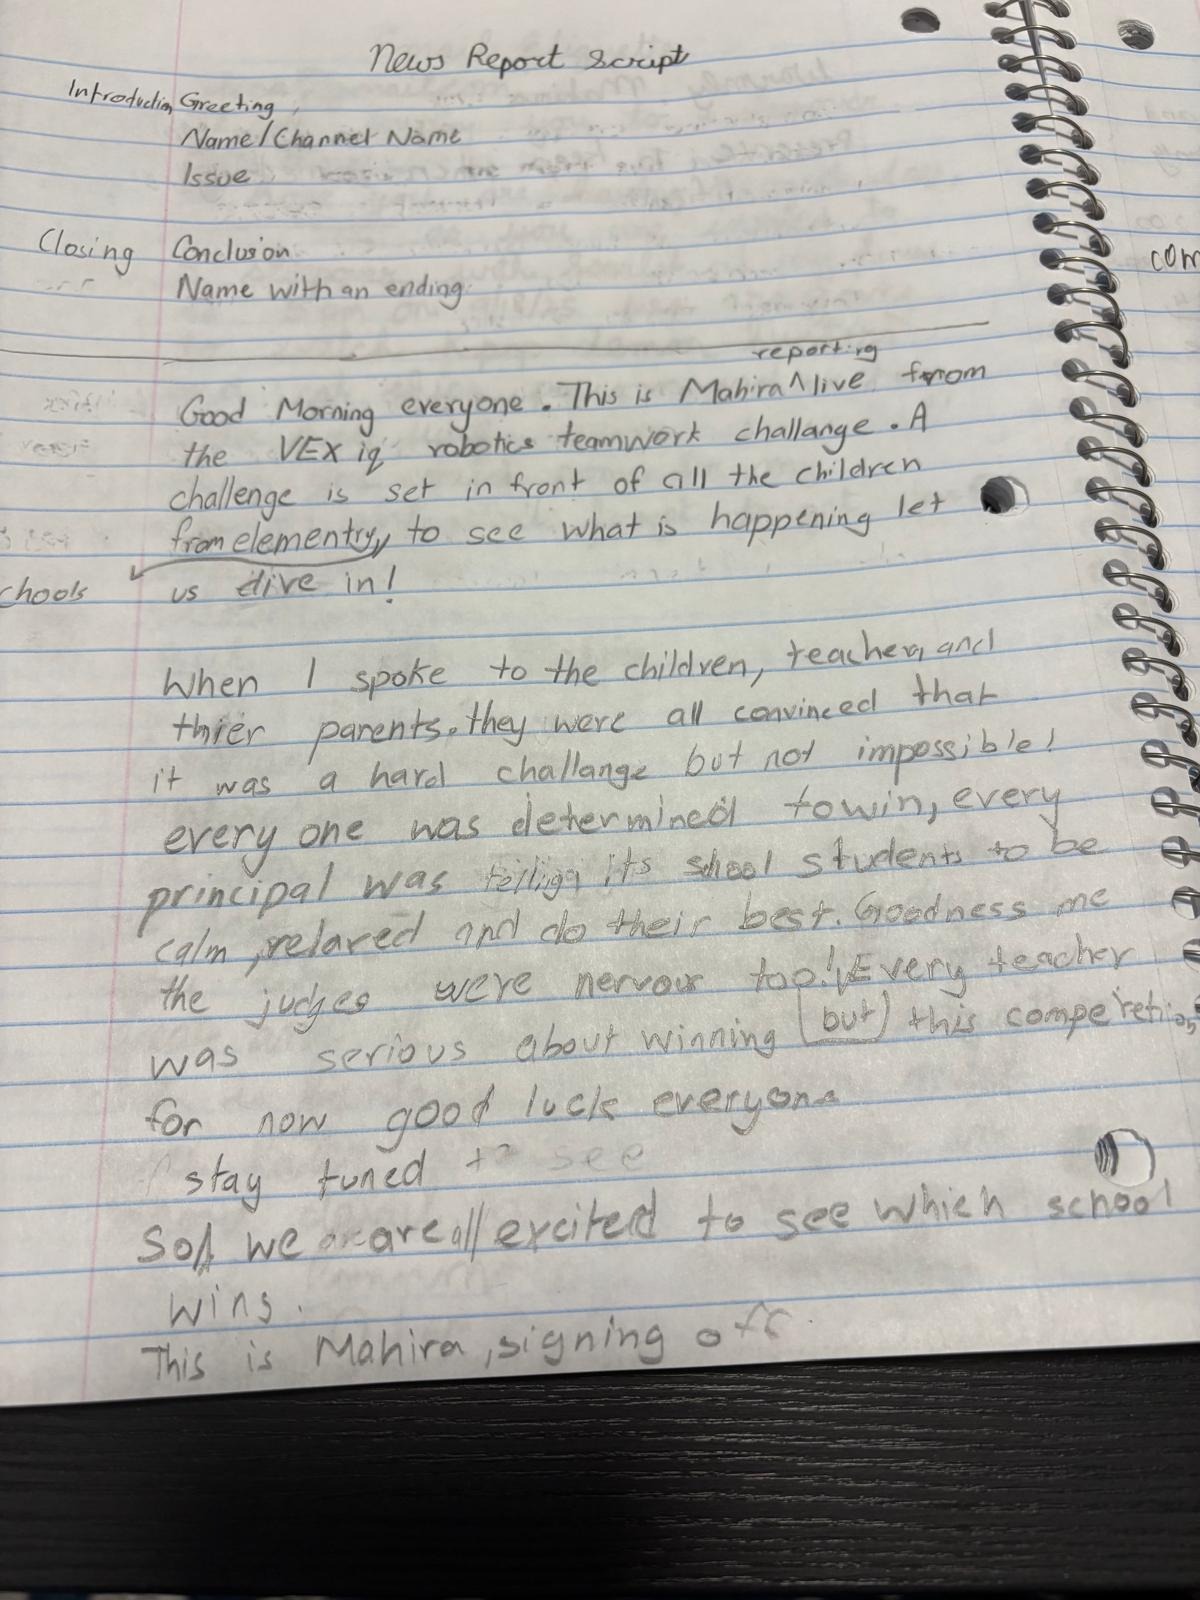 News Report Script
Introduction Greeting
Name/Channel Name
Issue
Closing Conclusion
Name with an ending
com
reporting
Good Morning everyone. This is Mahira ^ live from
the VEX iq robotics teamwork challange. A
challenge is set in front of all the children
from elementry, to see what is happening let
chools us dive in!
When I spoke to the children, teacher, and
thier parents. they were all convinced that
it was a hard challange but not impossible!
every one was determined to win, every
principal was its school students to be
calm, relaxed and do their best. Goodness me
the judges were nervous too! Every teacher
was serious about winning (but) this competetion
for now good luck everyone
stay tuned to see
So we are all excited to see which school
wins.
This is Mahira, signing off